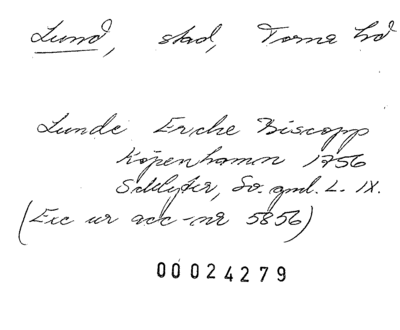 Lund, stad, Torna hd
Lunde Erche Biscopp
Köpenhamn 1756
Schlyter, Sv. gml. L. IX.
(Exc ur acc-nr 5856)
00024279